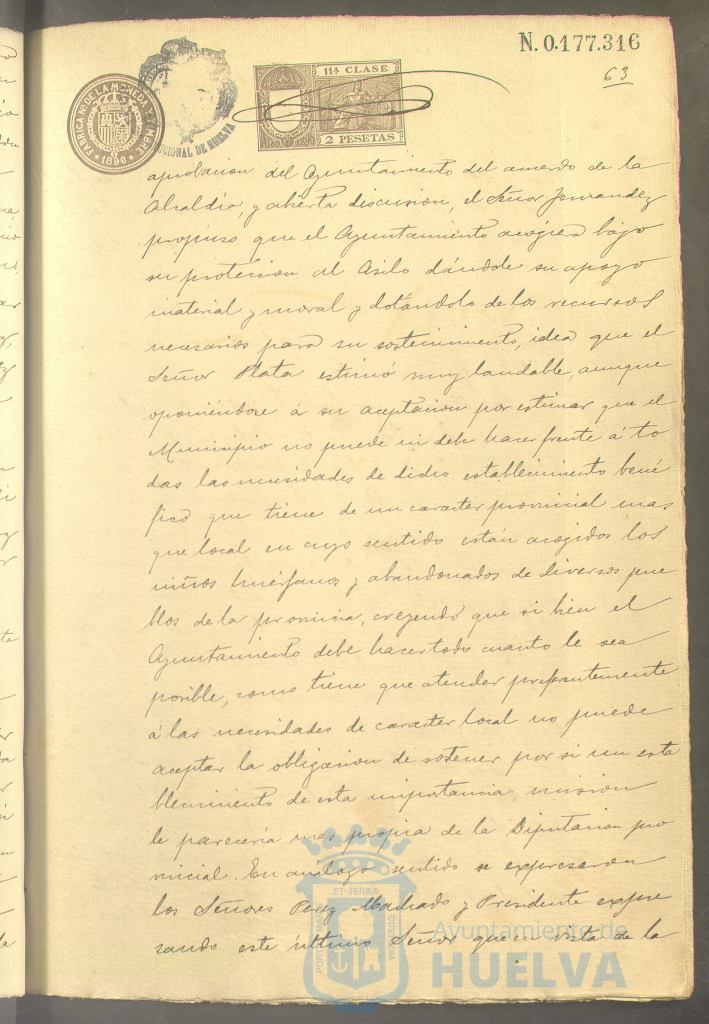 N. 0.177.316
63
FABRICA N. DE LA MONEDA Y TIMBRE
1896
CIONAL DE HUELVA
11ª CLASE
2 PESETAS
aprobacion del Ayuntamiento del acuerdo de la
Alcaldía, y abierta discusion, el Señor Fernandez
propuso que el Ayuntamiento acogiera bajo
su proteccion al Asilo dándole su apoyo
material y moral y dotándolo de los recursos
necesarios para su sostenimiento, idea que el
Señor Plata estimó muy laudable, aunque
oponiéndose á su aceptacion por estimar que el
Municipio no puede ni debe hacer frente á to
das las necesidades de dicho establecimiento bené
fico que tiene de un caracter provincial mas
que local en cuyo sentido están acogidos los
niños huérfanos y abandonados de diversos pue
blos de la provincia, creyendo que si bien el
Ayuntamiento debe hacer todo cuanto le sea
posible, como tiene que atender preferentemente
á las necesidades de caracter local no puede
aceptar la obligacion de sostener por si un esta
blecimiento de esta importancia, mision
le pareceria mas propia de la Diputacion pro
vincial. En análogo sentido se expresaron
los Señores Perez Machado y Presidente expre
sando este último Señor que en vista de la
PORTUS MARIS ET TERRÆ CUSTODIA
Ayuntamiento de
HUELVA